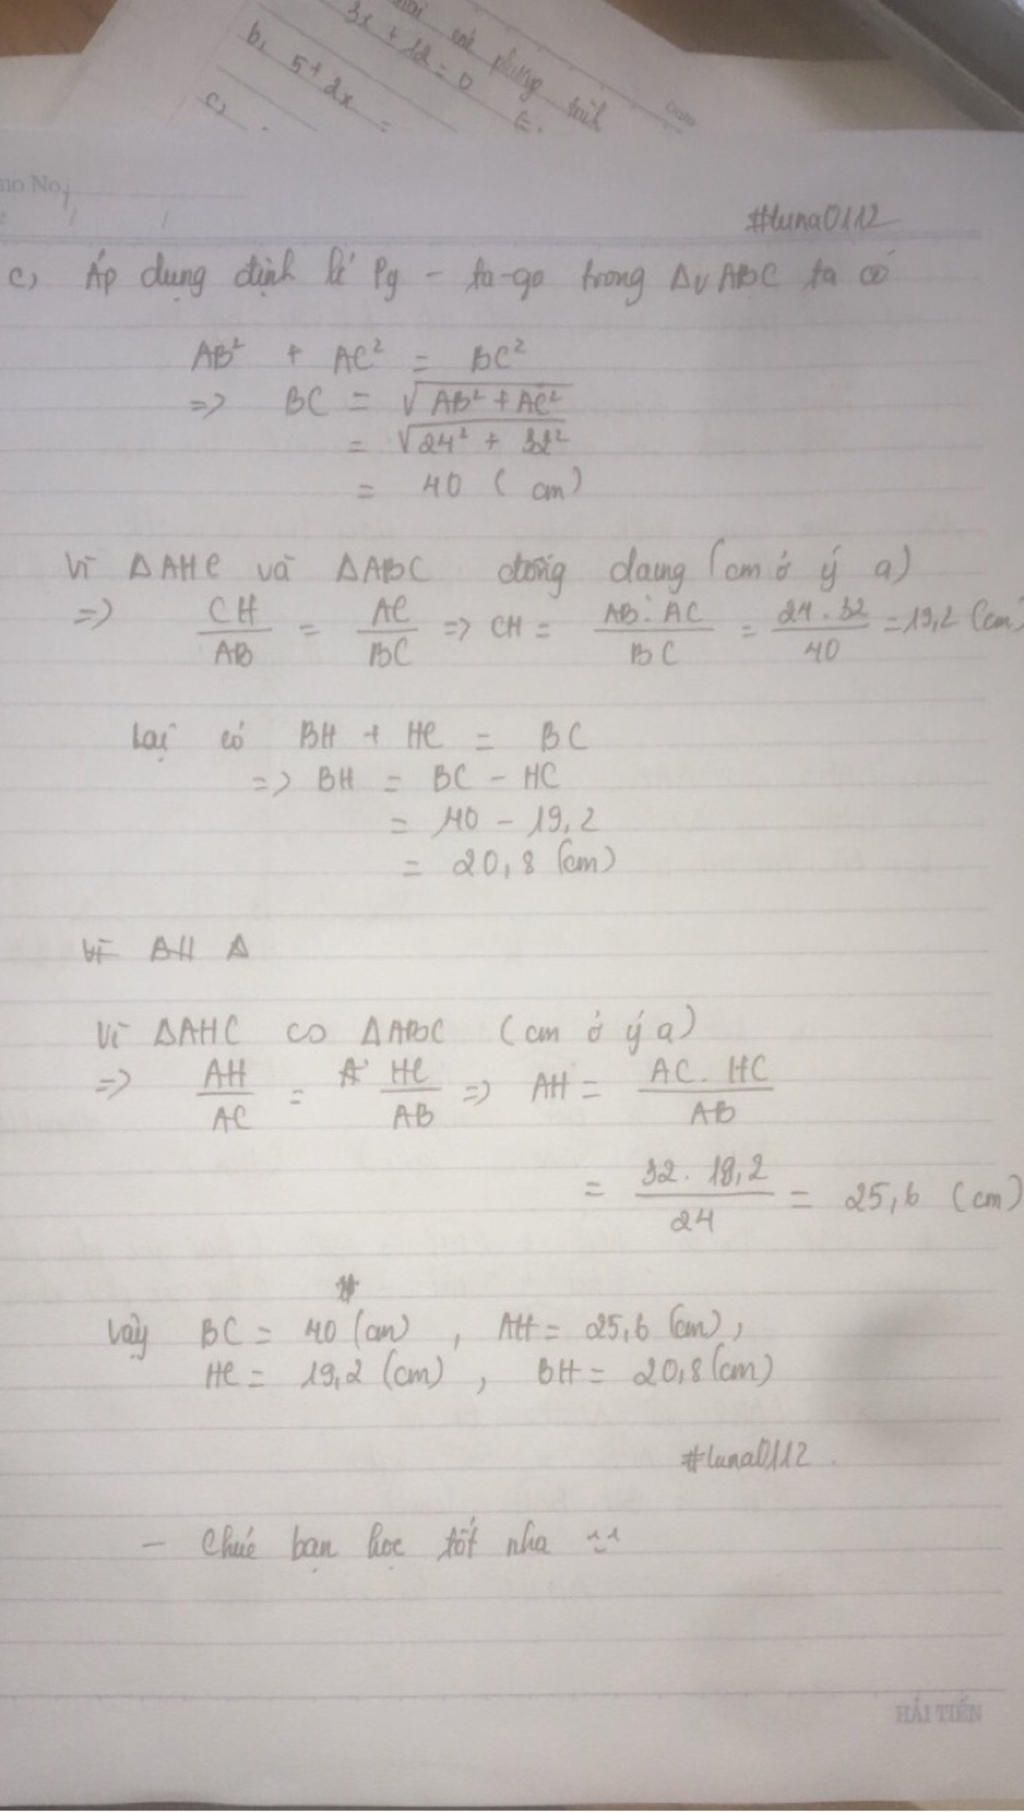 3x + 12 = 0
b, 5 + 2x =
c,
No.
#luna0112
c, Áp dụng định lí Py - ta-go trong ΔvABC ta có
AB² + AC² = BC²
=> BC = √AB² + AC²
= √24² + 32²
= 40 (cm)
Vì ΔAHC và ΔABC đồng dạng (cm ở ý a)
=> CH/AB = AC/BC => CH = AB . AC/BC = 24 . 32/40 = 19,2 (cm)
Lại có BH + HC = BC
=> BH = BC - HC
= 40 - 19,2
= 20,8 (cm)
Vì ΔAHC ∽ ΔABC (cm ở ý a)
=> AH/AC = HC/AB => AH = AC . HC/AB
= 32 . 19,2/24 = 25,6 (cm)
Vậy BC = 40 (cm) , AH = 25,6 (cm),
HC = 19,2 (cm) , BH = 20,8 (cm)
#luna0112
- Chúc bạn học tốt nha
HẢI TIẾN